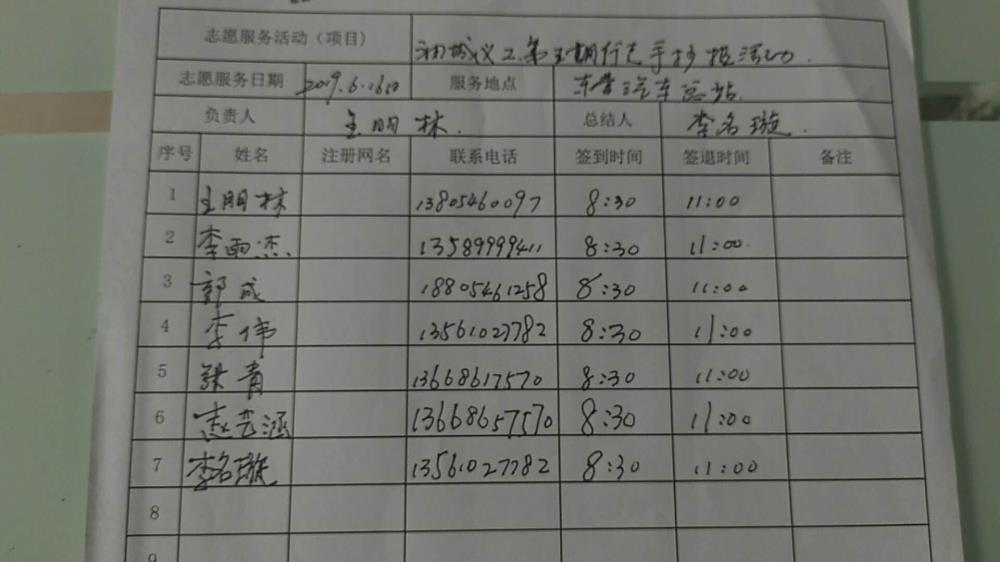 志愿服务活动（项目） 义工第五期行之手抄报活动
志愿服务日期 2019.6.16日 服务地点 东营汽车总站
负责人 王朋林 总结人 李名璇
序号 姓名 注册网名 联系电话 签到时间 签退时间 备注
1 王朋林 13805460097 8:30 11:00
2 李雨杰 13589999411 8:30 11:00
3 郭成 18805461258 8:30 11:00
4 李伟 13561027782 8:30 11:00
5 张青 13668617570 8:30 11:00
6 赵艺涵 13668657570 8:30 11:00
7 李名璇 13561027782 8:30 11:00
8
9